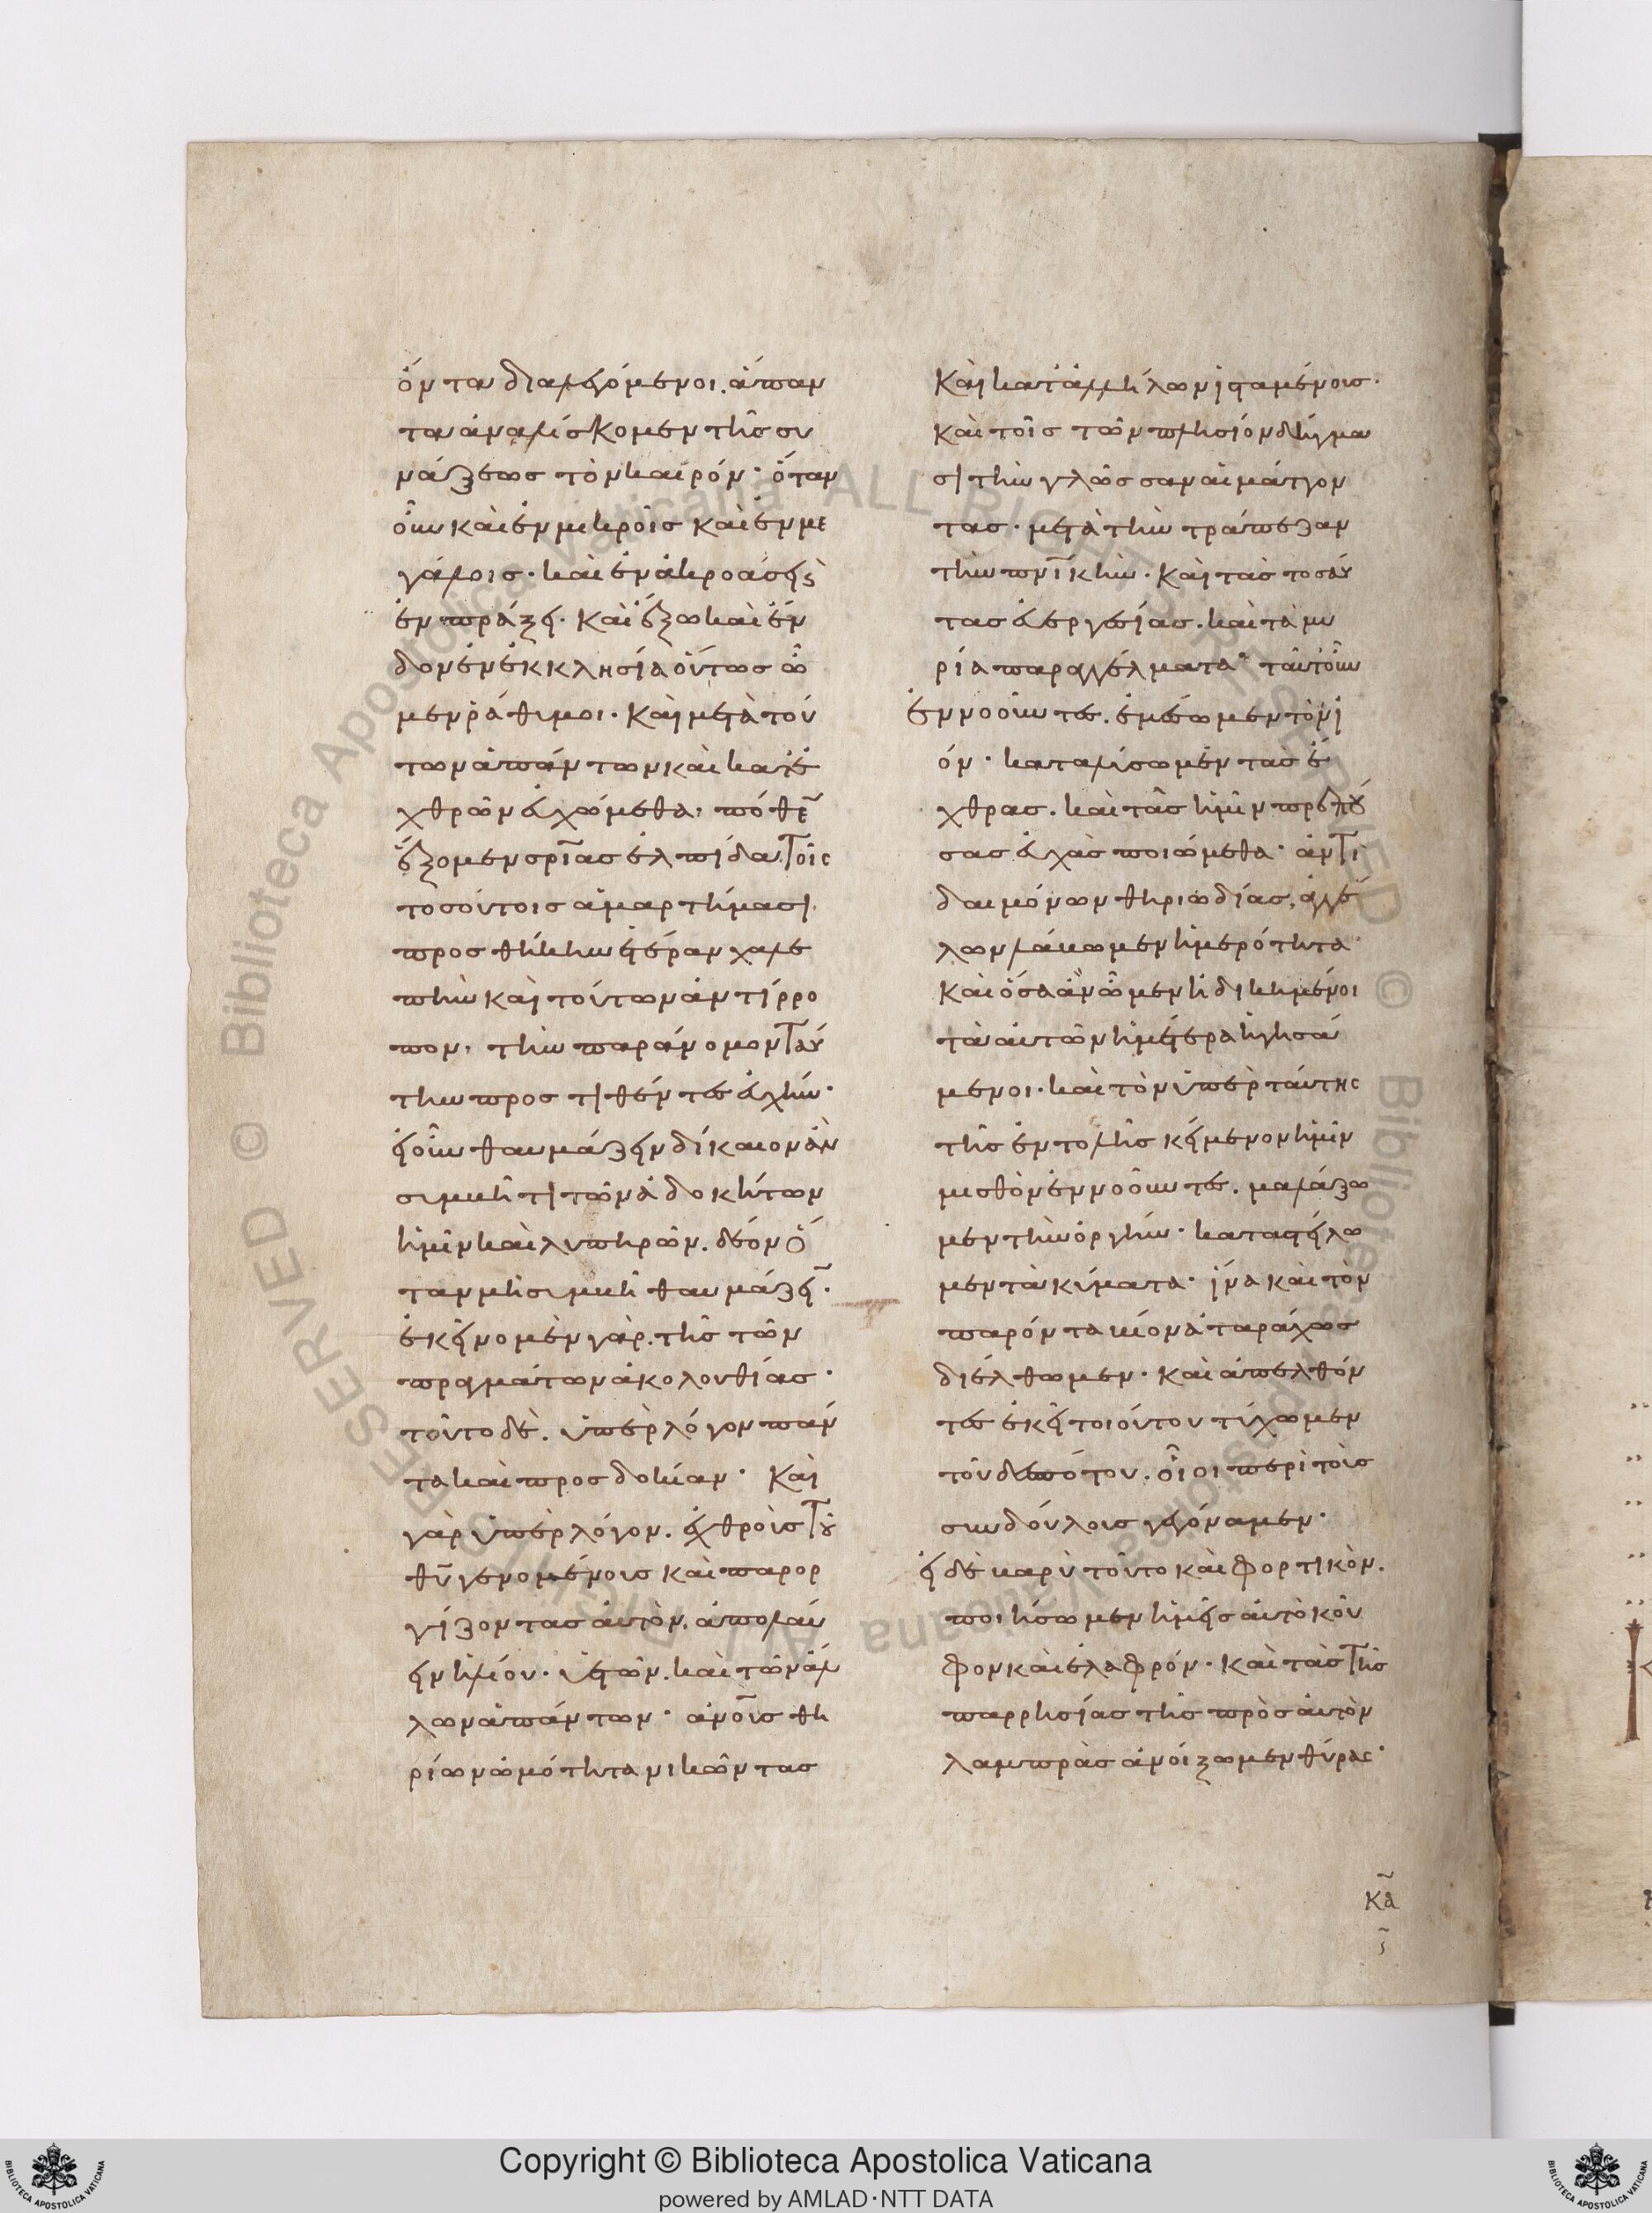 όντα διαλεγόμενοι. ἅπαν
τα ἀναλίσκομεν τῆς συ
νάξεως τὸν καιρόν· ὅταν
οὖν καὶ ἐν μικροῖς καὶ ἐν με
γάλοις. καὶ ἐν ἀκροάσει καὶ
ἐν πράξει. καὶ ἔξω καὶ ἔν
δον ἐν ἐκκλησία οὕτως ὦ
μεν ράθυμοι. καὶ μετὰ τού
των ἁπάντων καὶ κατ ἐ
χθρῶν εὐχώμεθα, πόθεν
ἕξομεν σρίας ἐλπίδα, τοῖς
τοσούτοις ἁμαρτήμασι.
προσθήκην ἑτέραν χαλε
πὴν καὶ τούτων ἀντίρρο
πον, τὴν παράνομον ταύ
την προστιθέντες εὐχήν.
εἶ οὖν θαυμάζειν δίκαιον ἐὰν
συμβῆ τι τῶν ἀδοκήτων
ἡμῖν καὶ λυπηρῶν. δέον ὅ
ταν μὴ συμβῆ θαυμάζειν.
ἐκεῖνο μὲν γὰρ. τῆς τῶν
πραγμάτων ἀκολουθίας.
τοῦτο δὲ. ὑπὲρ λόγον πάν
τα καὶ προσδοκίαν. Καὶ
γὰρ ὑπὲρ λόγον. ἐχθροὺς τοῦ
θυ γενομένους καὶ παρορ
γίζοντας αὐτὸν, ἀπολαύ
ειν ἡλίου. ὑετῶν. καὶ τῶν ἄλ
λων ἁπάντων. ἀνους θη
ρίων ὠμότητα νικῶντας
Καὶ κατ ἀλλήλων ἱσταμένους.
καὶ τοῖς τῶν πλησίον δήγμα
σι τὴν γλῶσσαν αἱμάττον
τας. μετὰ τὴν τράπεζαν
τὴν πνικὴν. καὶ τὰς τοσαύ
τας εὐεργεσίας. καὶ τὰ μυ
ρία παραγγέλματα. ταῦτ οὖν
ἐννοοῦντες. ἐμέσωμεν τὸν ἰ
όν. καταλύσωμεν τὰς ἔ
χθρας. καὶ τὰς ἡμῖν πρεπού
σας εὐχὰς ποιώμεθα. ἀντὶ
δαιμόνων θηριωδίας, ἀγγέ
λων λάβωμεν ἡμερότητα.
Καὶ ὅσα ἂν ὦμεν ἠδικημένοι
τὰ αὐτῶν ἡμέτερα ἡγησά
μενοι. καὶ τὸν ὑπὲρ ταύτης
τῆς ἐντολῆς κείμενον ἡμῖν
μισθὸν ἐννοοῦντες. μαλάξω
μεν τὴν ὀργήν. καταστείλω
μεν τὰ κύματα. ἵνα καὶ τὸν
παρόντα βίον ἀταράχως
διέλθωμεν. καὶ ἀπελθόν
τες ἐκεῖ τοιούτου τύχωμεν
τοῦ δεσπότου. οἷοι περὶ τοὺς
συνδούλους γεγόναμεν.
εἰ δὲ βαρὺ τοῦτο καὶ φορτικὸν.
ποιήσωμεν ἡμεῖς αὐτὸ κοῦ
φον καὶ ἐλαφρόν. καὶ τὰς τῆς
παρρησίας τῆς πρὸς αὐτὸν
λαμπρὰς ἀνοίξωμεν θύρας.
κα